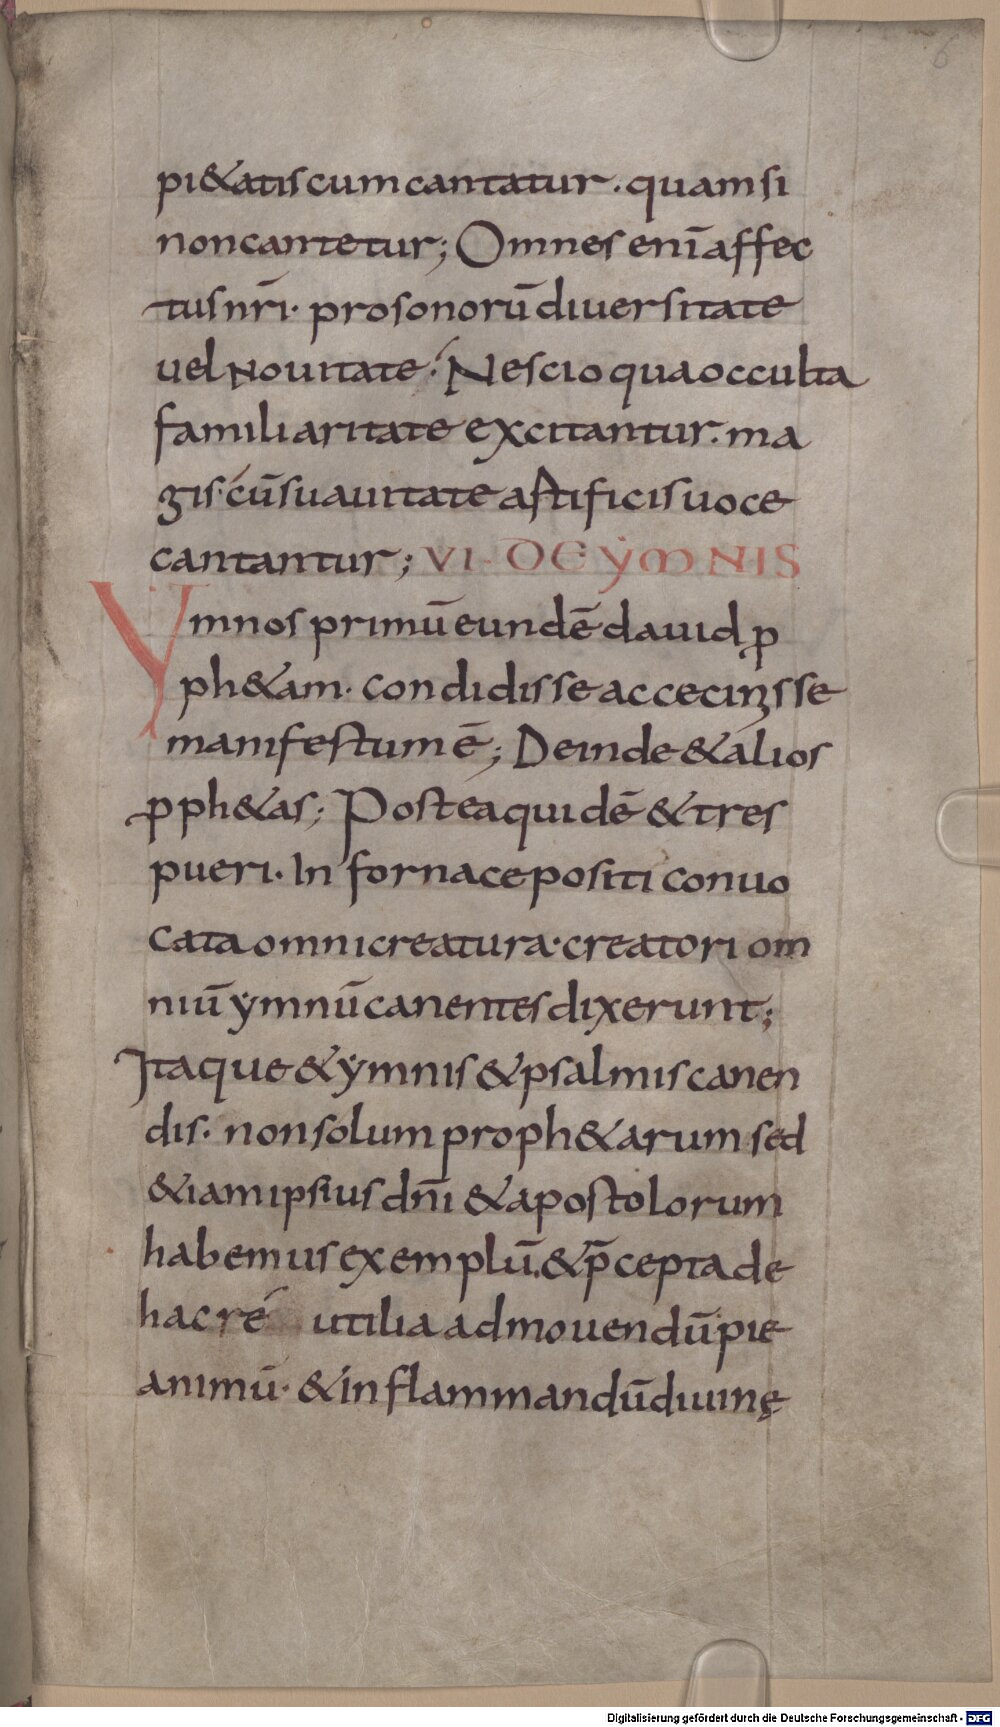 6
pi&atis cum cantatur. quam si
non cantetur; Omnes enī affec
tus nr̄i. pro sonorū diuersitate
uel nouitate. Nescio qua occulta
familiaritate excitantur. ma
gis cū suauitate artificis uoce
cantantur; VI. DE YMNIS
Ymnos primū eundē dauid ꝓ
ph&am. condidisse ac cecinisse
manifestum ē; Deinde & alios
ꝓph&as; Postea quidē & tres
pueri. In fornace positi conuo
cata omni creatura. creatori om
niū ẏmnū canentes dixerunt;
Itaque & ẏmnis & psalmis canen
dis. non solum proph&arum sed
&iam ipsius dn̄i & apostolorum
habemus exemplū. & p̄cepta de
hac re utilia ad mouendū pie
animū. & inflammandū diuinę
Digitalisierung gefördert durch die Deutsche Forschungsgemeinschaft - DFG